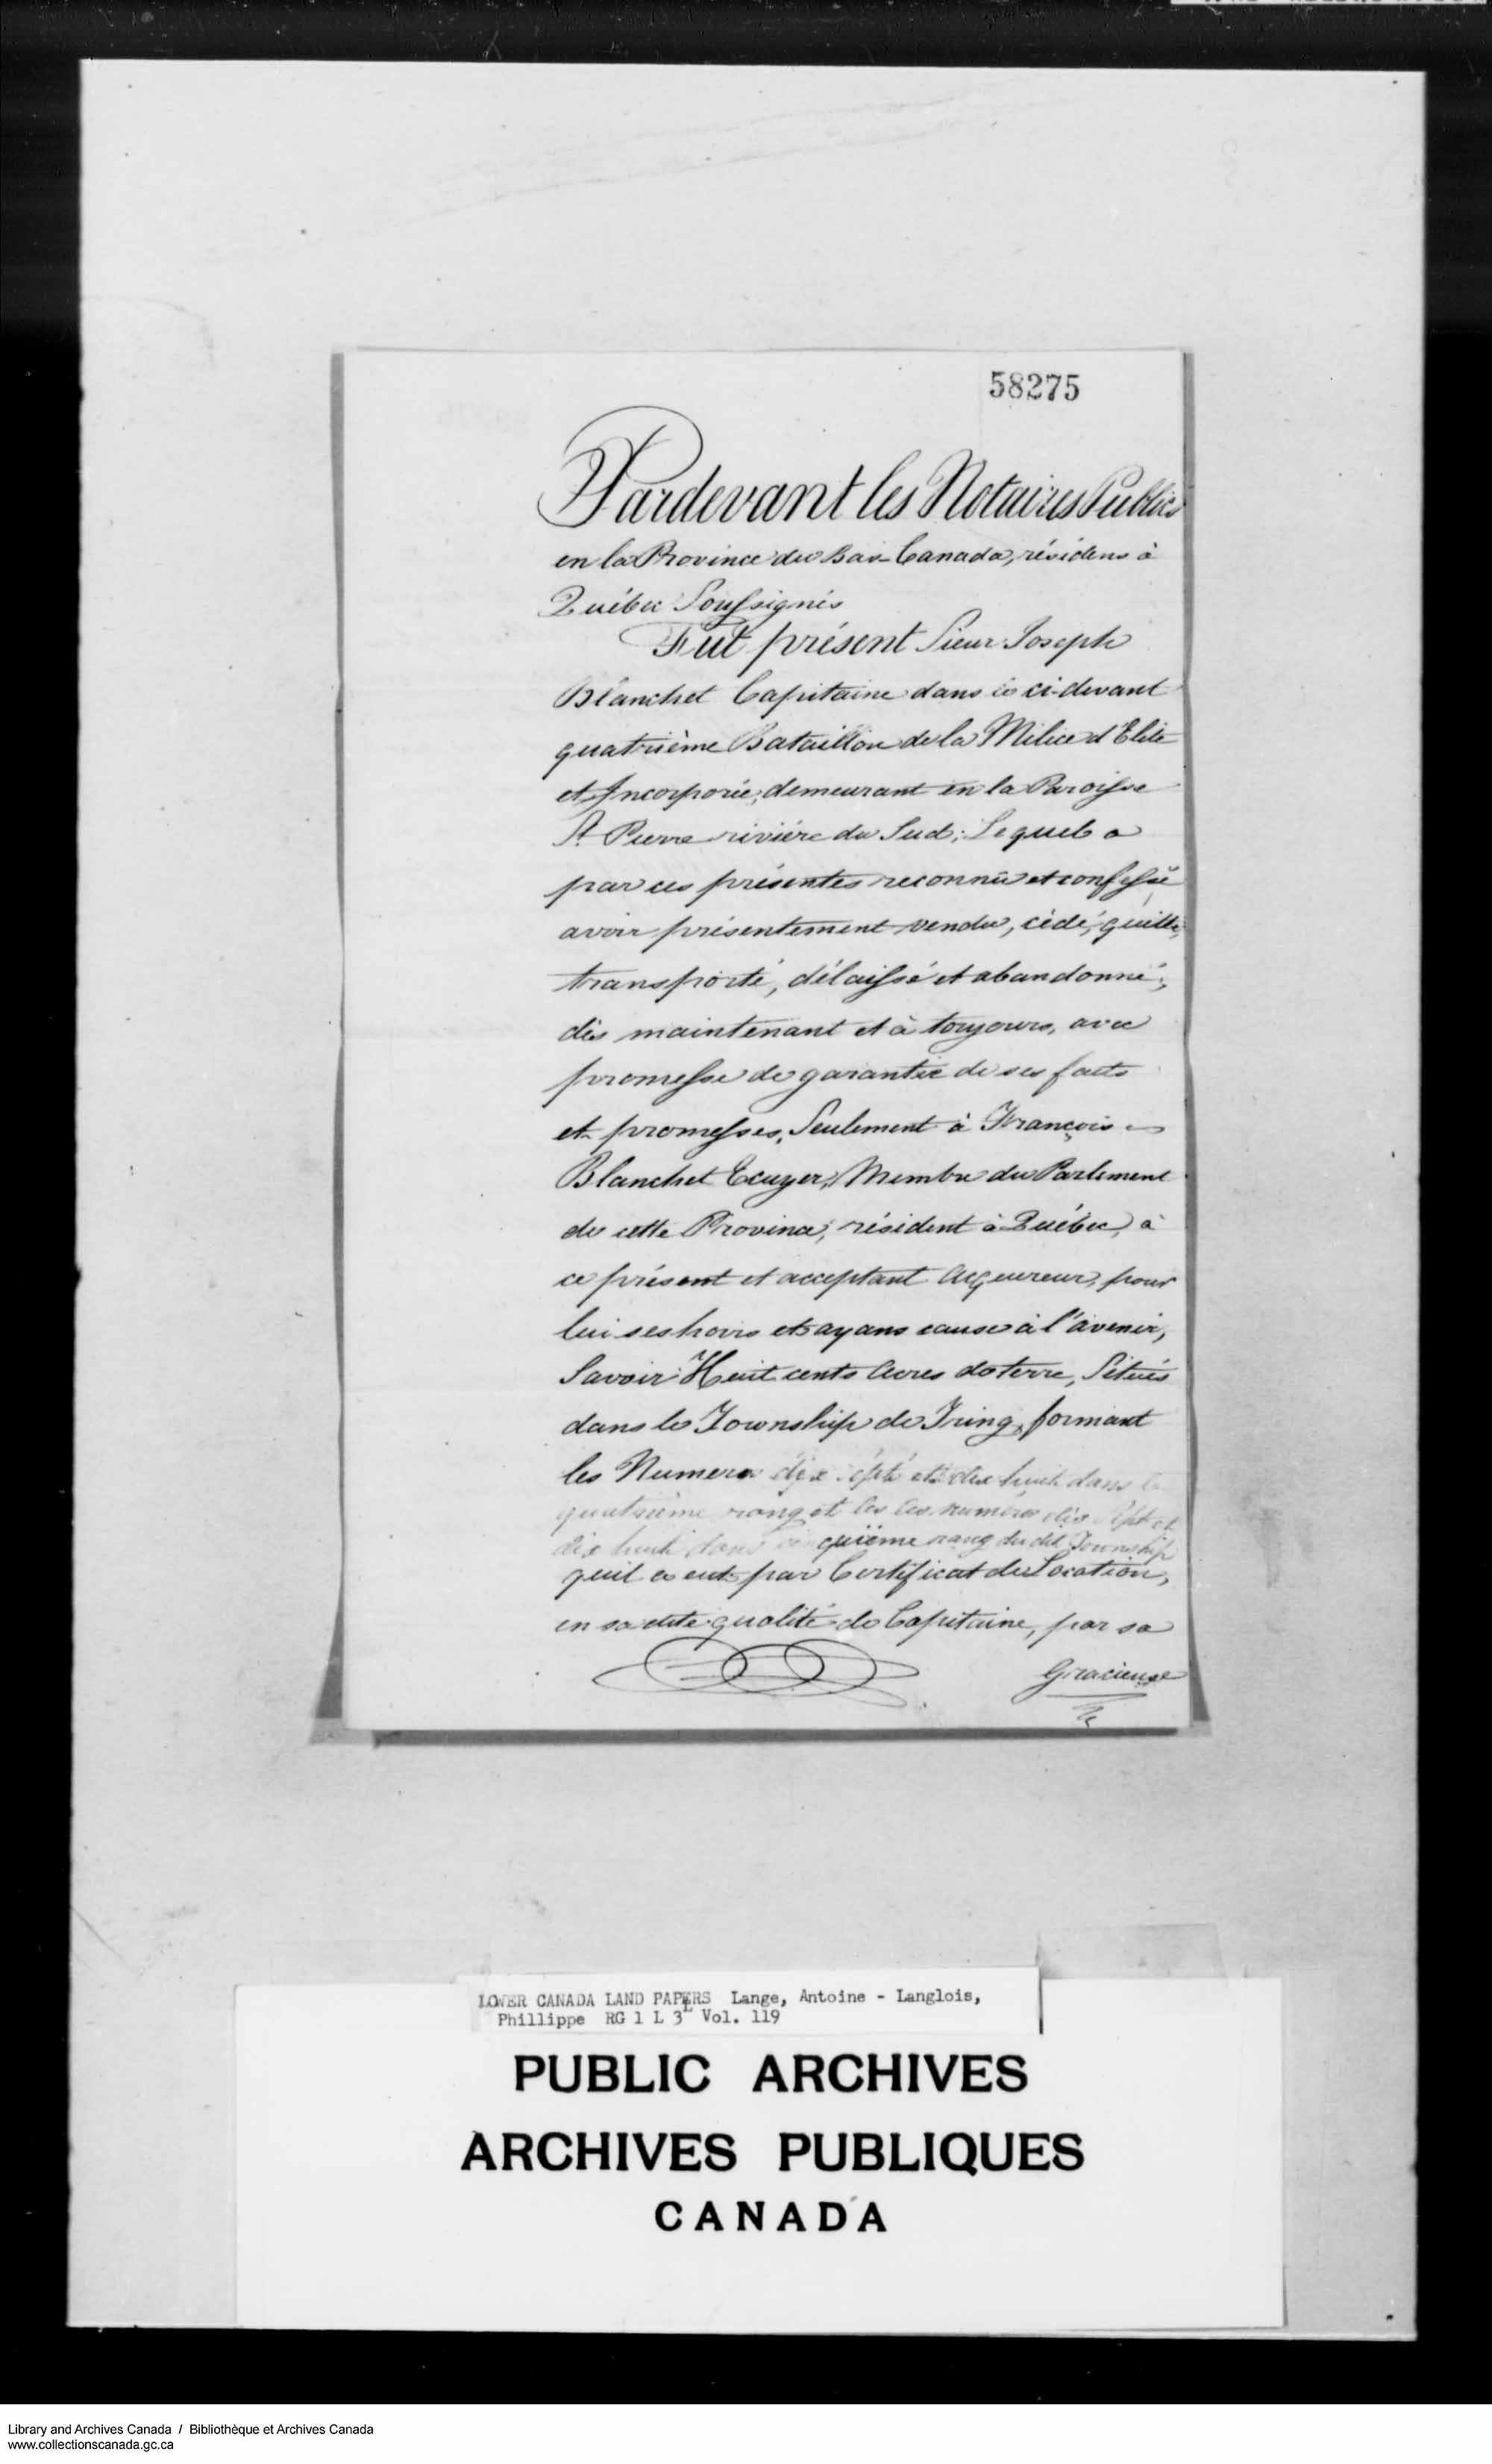 58275
Pardevant les Notaires Publics
en la Province du Bas-Canada, résidens à
Québec Soussignés
Fut présent Sieur Joseph
Blanchet Capitaine dans le ci-devant
quatrième Bataillon de la Milice d'Elite
et Incorporée, demeurant en la Paroisse
St Pierre rivière du Sud; Lequel a
par ces présentes reconnû et confessé
avoir présentement vendu, cédé, quitté,
transporté, délaissé et abandonné,
dès maintenant et à toujours, avec
promesse de garantie de ses faits
et promesses, Seulement à François
Blanchet Ecuyer, Membre du Parlement
de cette Province, résident à Québec, à
ce présent et acceptant Acquereur, pour
lui ses hoirs et ayans cause à l'avenir,
Savoir: Huit cents Acres de terre, Situés
dans le Township de Tring, formant
les Numero dix sept et dix huit dans le
quatrième rang et les les numéros dix sept et
dix huit dans cinquième rang du dit Township
qu'il a eut par Certificat de Location,
en sa dite qualité de Capitaine, par sa
Gracieuse
LOWER CANADA LAND PAPERS Lange, Antoine - Langlois,
Phillippe RG 1 L 3L Vol. 119
PUBLIC ARCHIVES
ARCHIVES PUBLIQUES
CANADA
Library and Archives Canada / Bibliothèque et Archives Canada
www.collectionscanada.gc.ca